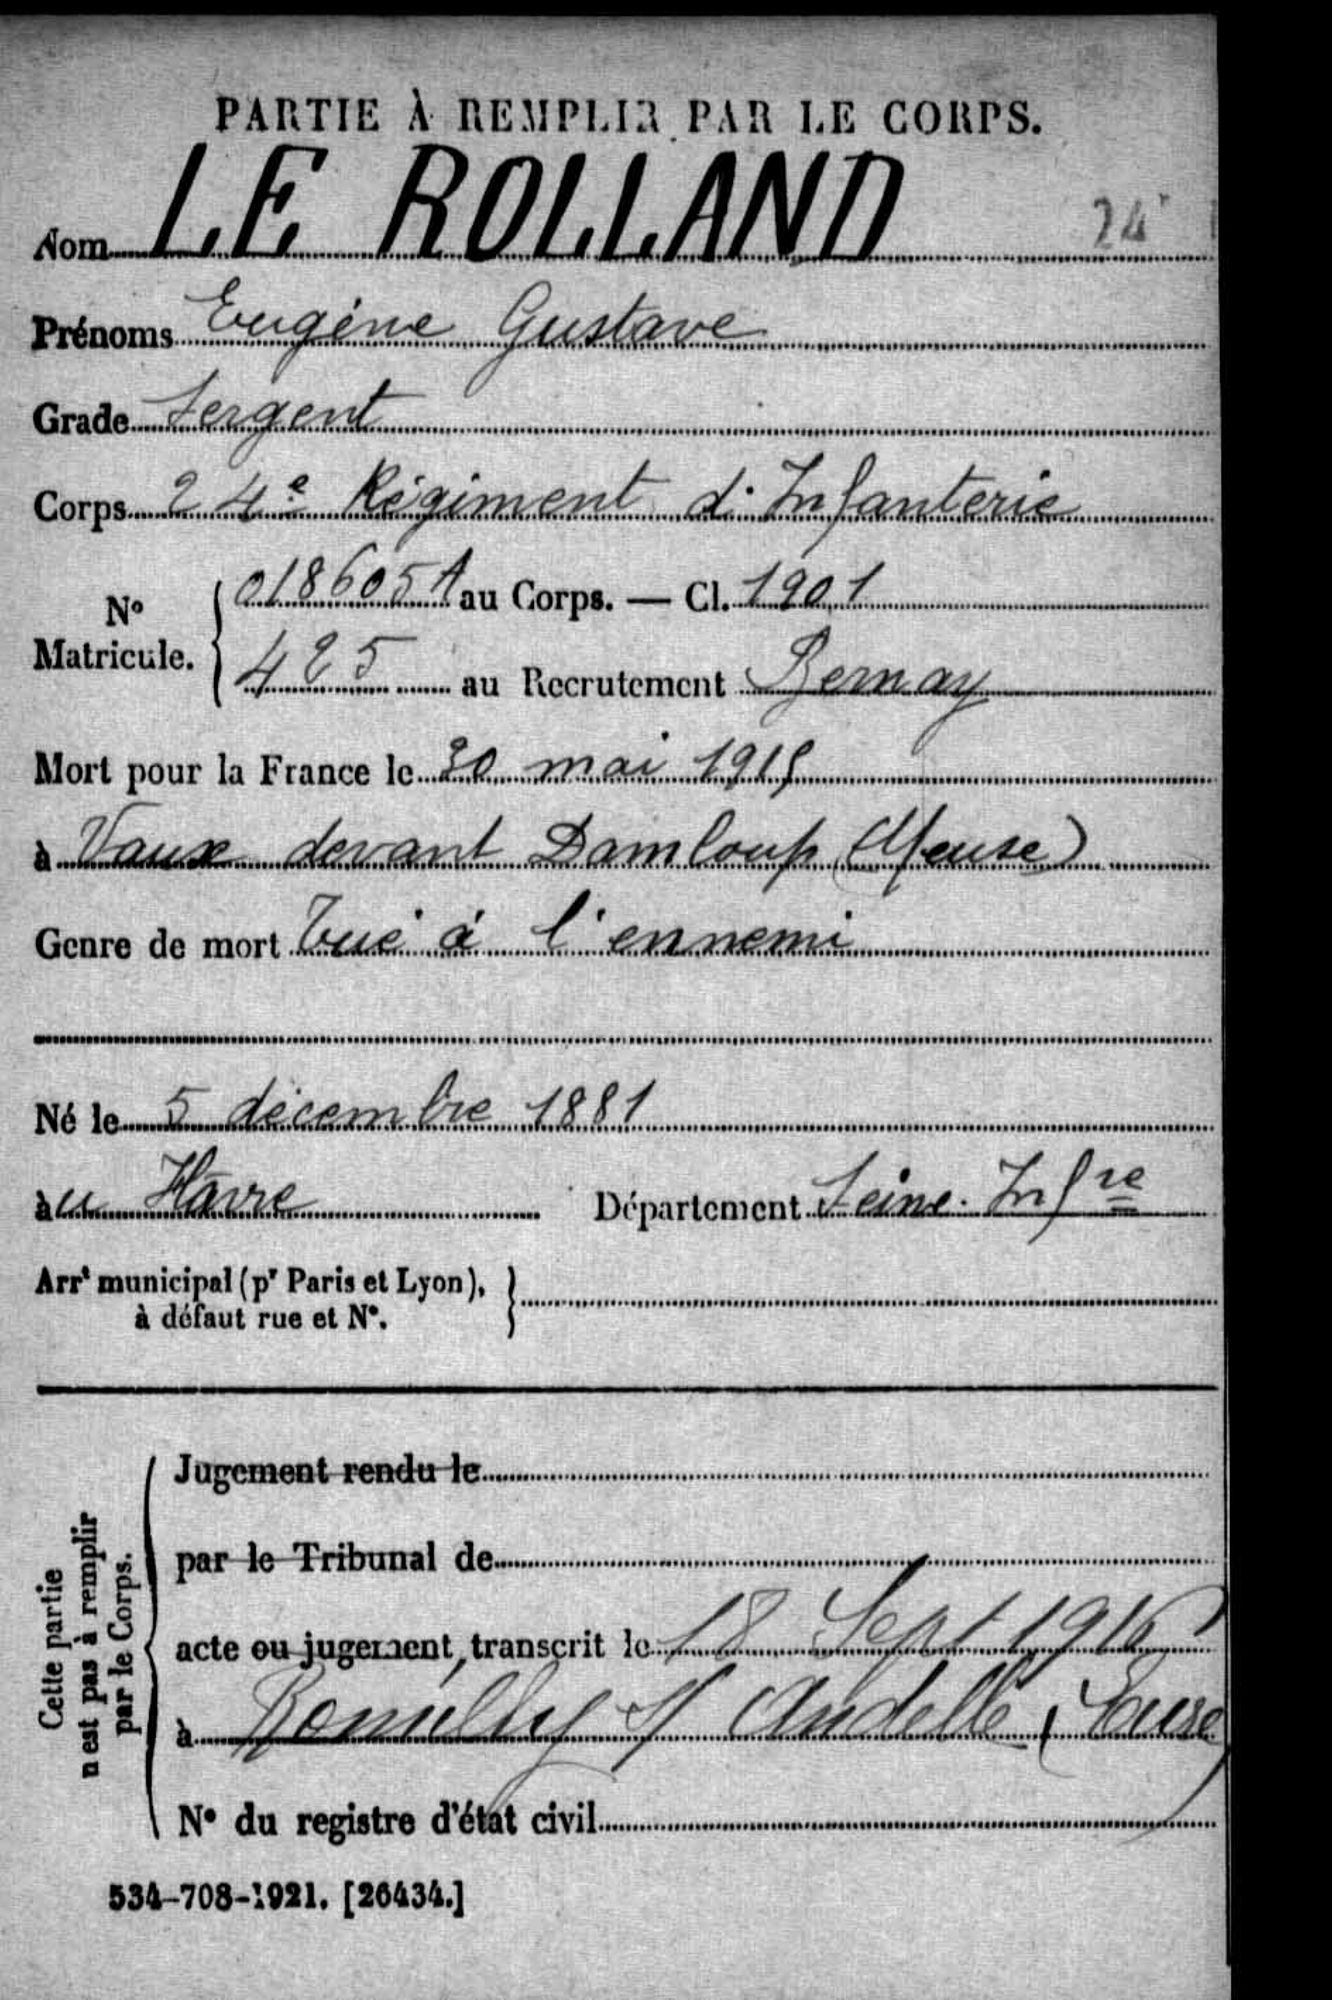 PARTIE À REMPLIR PAR LE CORPS.
Nom LE ROLLAND 24
Prénoms Eugène Gustave
Grade Sergent
Corps 24e Régiment d'Infanterie
No Matricule. { 018605A au Corps. — Cl. 1901
425 au Recrutement Bernay
Mort pour la France le 30 mai 1915
à Vaux devant Damloup (Meuse)
Genre de mort Tué à l'ennemi
Né le 5 décembre 1881
au Hâvre Département Seine-Infre
Arrt municipal (pr Paris et Lyon), }
à défaut rue et No.
Cette partie
n'est pas à remplir
par le Corps.
Jugement rendu le
par le Tribunal de
acte ou jugement, transcrit le 18 Sept 1916
à Romilly s/ Andelle (Eure)
No du registre d'état civil
534-708-1921. [26434.]